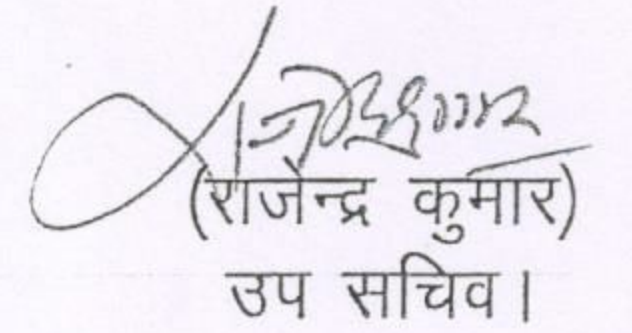 (राजेन्द्र कुमार)
उप सचिव।